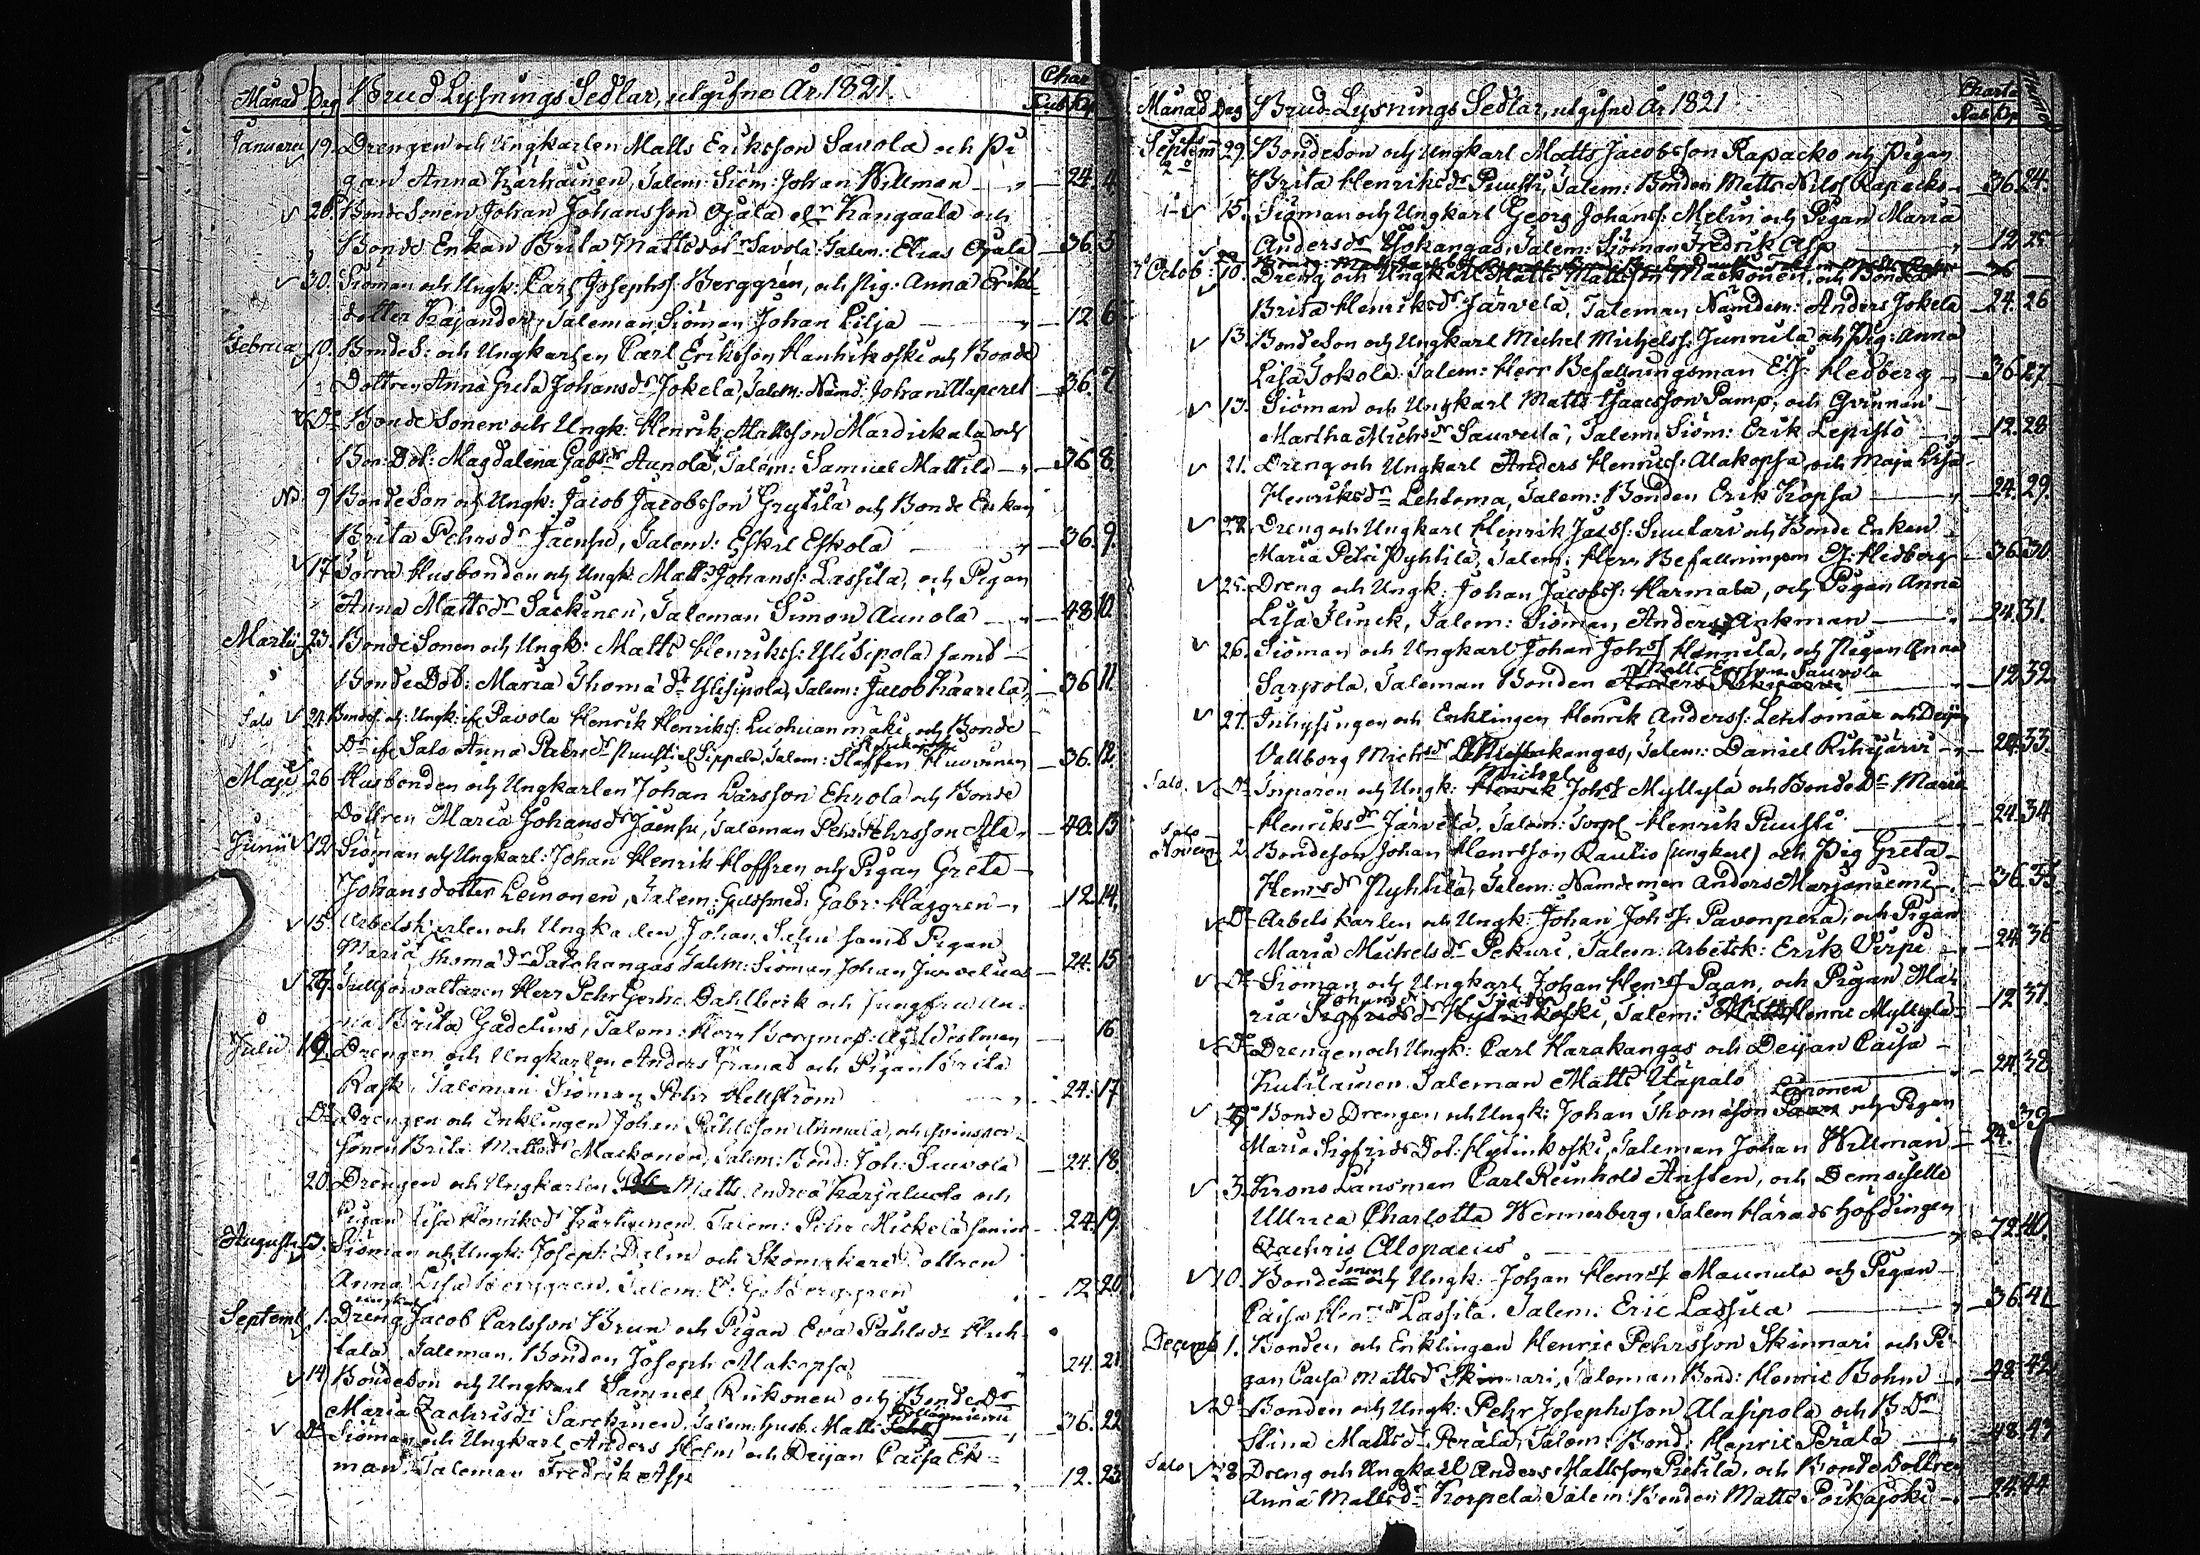 Månad Dag Brud Lysnings Sedlar, utgifne År 1821. Char
Rub Kp
Januarii 19. Drengen och Ungkarlen Matts Eriksson Savola och Pi
gan Anna Karhainen, Talem: Siöm: Johan Willman 24. 4.
26. Bonde Sonen Johan Johansson Ojala elr Kangaala och
Bonde Enkan Brita Mattsdotr Savola. Talem: Elias Ojala 36. 5
30. Siöman och Ungk: Carl Josephs: Berggrén, och Pig: Anna Eriks
dotter Kajander, Taleman Siöman Johan Lilja 12 6
Februa 10. BondeS: och Ungkarlen Carl Eriksson Hanhikoski och Bonde
Dottren Anna Greta Johansdr Jokela, Talem: Nämd: Johan Ulaperet 36. 7.
Do Bonde Sonen och Ungk: Henrik Mattsson Mardickala och
Bon: Dot: Magdalena Gabsdr Aunola, Talem: Samuel Mattila 36 8.
No 9 BondeSon och Ungk: Jacob Jacobsson Grytila och Bonde Enkan
Brita Pehrsdr Jaensu, Talem: Eskel Eskola 36. 9.
17 Torra Husbonden och Ungk: Matts Johans: Lassila, och Pigan
Anna Mattsdr Sarkinen, Taleman Simon Aunola 48 10.
Martii 23. Bonde Sonen och Ungk: Matts Henrikss: Yli Sipola samt
Bonde Dot: Maria Thoma dr Ylisipola, Talem: Jacob Kaarela 36 11.
Salo 24. Bondes: och Ungk: if Pavola Henrik Henrikss: Luohuanmäki och Bonde
Dr if Salo Anna Pehrsdr Puusti el Sippala, Talem: Staffen Huovinen 36. 12.
Maji 26 Husbonden och Ungkarlen Johan Larsson Ehrola och Bonde
Dottren Maria Johansdr Jaensu, Taleman Pehr Pehrsson Ala 48. 13
Junii 12. Siöman och Ungkarl: Johan Henrik Hoffren och Pigan Greta
Johansdotter Leinonen, Talem: Gulsmed: Gabr: Haggren 12. 14.
15. Arbetskarlen och Ungkarlen Johan Salin samt Pigan
Maria Thoma dr Salokangas Talem: Siöman Johan Jurvelius 24. 15
29. Tullförvaltaren Herr Pehr Gerhr Dahlbeck och Jungfru An-
na Brita Gadelius, Talem: Herr Borgmest: Westman 16
Julii 19. Drengen och Ungkarlen Anders Granat och Pigan Brita
Rask. Taleman Siöman Pehr Hellström 24. 17.
Do Drengen och Enklingen Johan Påhlsson Annala, och qvinsper-
sonen Brita Mattsdr Markonen, Talem: Bond: Joh: Sauvola 24. 18.
20. Drengen och Ungkarlen Matts Andreä Karjaluoto och
Pigan Lisa Henriksdr Karhunen. Talem: Pehr Mickela junior 24. 19.
Augusti 3. Siöman och Ungk: Joseph Dalin och Skomakare Dottren
Anna Lisa Berggren, Talem: C: G: Berggren 12 20.
Ungkarl
Septemb 1. Dreng Jacob Carlsson Brun och Pigan Eva Påhlsdr Huh
tala. Taleman. Bonden Joseph Alakopsa 24. 21
14 Bondeson och Ungkarl Samuel Riikonen och Bonde Dr
Maria Zachrisdr Sarckinen, Talem: Husb. Matts 36. 22
Do Siöman och Ungkarl Anders Holm och Deijan Caisa Ek-
man, Taleman Fredrik Asp 12. 23
Månad Dag Brud-Lysnings Sedlar, utgifne År 1821 Charta
Rub Kp
Septem 29. BondeSon och Ungkarl Matts Jacobsson Rapacko och Pigan
Brita Henriksdr Puusti, Talem: Bonden Matts Nils: Rapacko 36. 24.
15. Siöman och Ungkarl Georg Johans: Melin och Pigan Maria
Andersdr Isokangas, Talem: Siöman Fredrik Asp 12 25
Octob: 10. Dreng och Ungkarl Matts Mattsson Mackonen, och Bonde dr 36
Brita Henriksdr Järvelä, Taleman Nämdem: Anders Jokela 24. 26
13. BondeSon och Ungkarl Michel Michelss: Junnila och Pig: Anna
Lisa Tokola. Talem: Herr Befallningsman Hedberg 36. 27
13. Siöman och Ungkarl Matts Isaacsson Pamp, och Qvinnan
Martha Michsdr Sauvula, Talem: Siöm: Erik Lepistö 12. 28
21. Dreng och Ungkarl Anders Henrics: Alakopsa och Maja Lisa
Henriksdr Lehtoma, Talem: Bonden Erik Kopsa 24. 29.
22. Dreng och Ungkarl Henrik Jacss: Suutari och Bonde Enkan
Maria Petri Pyhtilä, Talem: Herr Befallningsm Hedberg 36. 30.
25. Dreng och Ungk: Johan Jacobss: Harmala, och Pigan Anna
Lisa Flinck, Talem: Siöman Anders Ankman 24. 31.
26. Siöman och Ungkarl Johan Johss Hannila, och Pigan Anna
Matts Ersson Sauvola
Sarpola, Taleman Bonden 12 32
27. Inhysingen och Enklingen Henrik Anderss: Lehtomar och Deijan
Vallborg Michsdr kangas, Talem: Daniel Rihijärvi 24. 33.
Michael
Salo. Do Inporen och Ungk: Henrik Johss Myllylä och Bonde Dr Maria
Henriksdr Järvela, Talem: Torpl Henrik Puusti 24. 34
Salo
Novem 2. Bondeson Johan Henrsson Rautio (Ungkarl) och Pig Greta
Henrsdr Pyhtilä, Talem: Nämdeman Anders Marjaniemi 36. 35
Do Arbets karlen och Ungk: Johan Johss: Pavonpera, och Pigan
Maria Michelsdr Pekuri, Talem: Arbetsk: Erik Virpi 24 36
Do Siöman och Ungkarl Johan Henrss Paan, och Pigan Ma-
ria Sigfridsdr Hylinkoski, Talem: Henric Myllylä 12 37.
Do Drengen och Ungk: Carl Harakangas och Deijan Caisa
Kuhlainen Taleman Matts Utapalo 24. 38
Leinonen
Do Bonde Drengen och Ungk: Johan Thomasson och Pigan
Maria Sigfrids Dot: Hylinkoski, Taleman Johan Willman 24. 39
3. Krono Länsman Carl Reinhold Ansten, och Demoiselle
Ullrica Charlotta Wennerberg, Talem Härads Höfdingen
Zachris Alopaeus 72. 40.
Sonen
10. Bonde och Ungk: Johan Henrss Maunula och Pigan
Caisa Henrsdr Lassila. Talem: Eric Lassila 36. 41
Decemb 1. Bonden och Enklingen Henric Pehrsson Skinnari och Pi
gan Caisa Mattsdr Skinnari, Taleman Bond: Henric Bohm 48. 42.
Do Bonden och Ungk: Pehr Josephsson Alasipola och B Dr
Stina Mattsdr Perälä, Talem: Bond: Henric Perälä 48. 43
Salo 8. Dreng och Ungkarl Anders Mattsson Pietilä, och Bonde Dottren
Anna Mattsdr Korpela, Talem: Bonden Matts Poikajoki 24. 44.